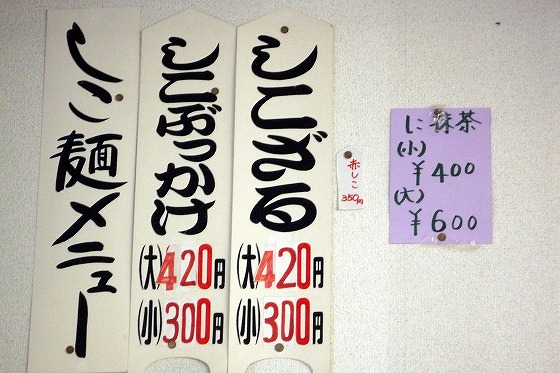 しこざる
(大)420円
(小)300円
しこぶっかけ
(大)420円
(小)300円
しこ麺メニュー
赤しこ
350円
に 抹茶
(小)
¥400
(大)
¥600